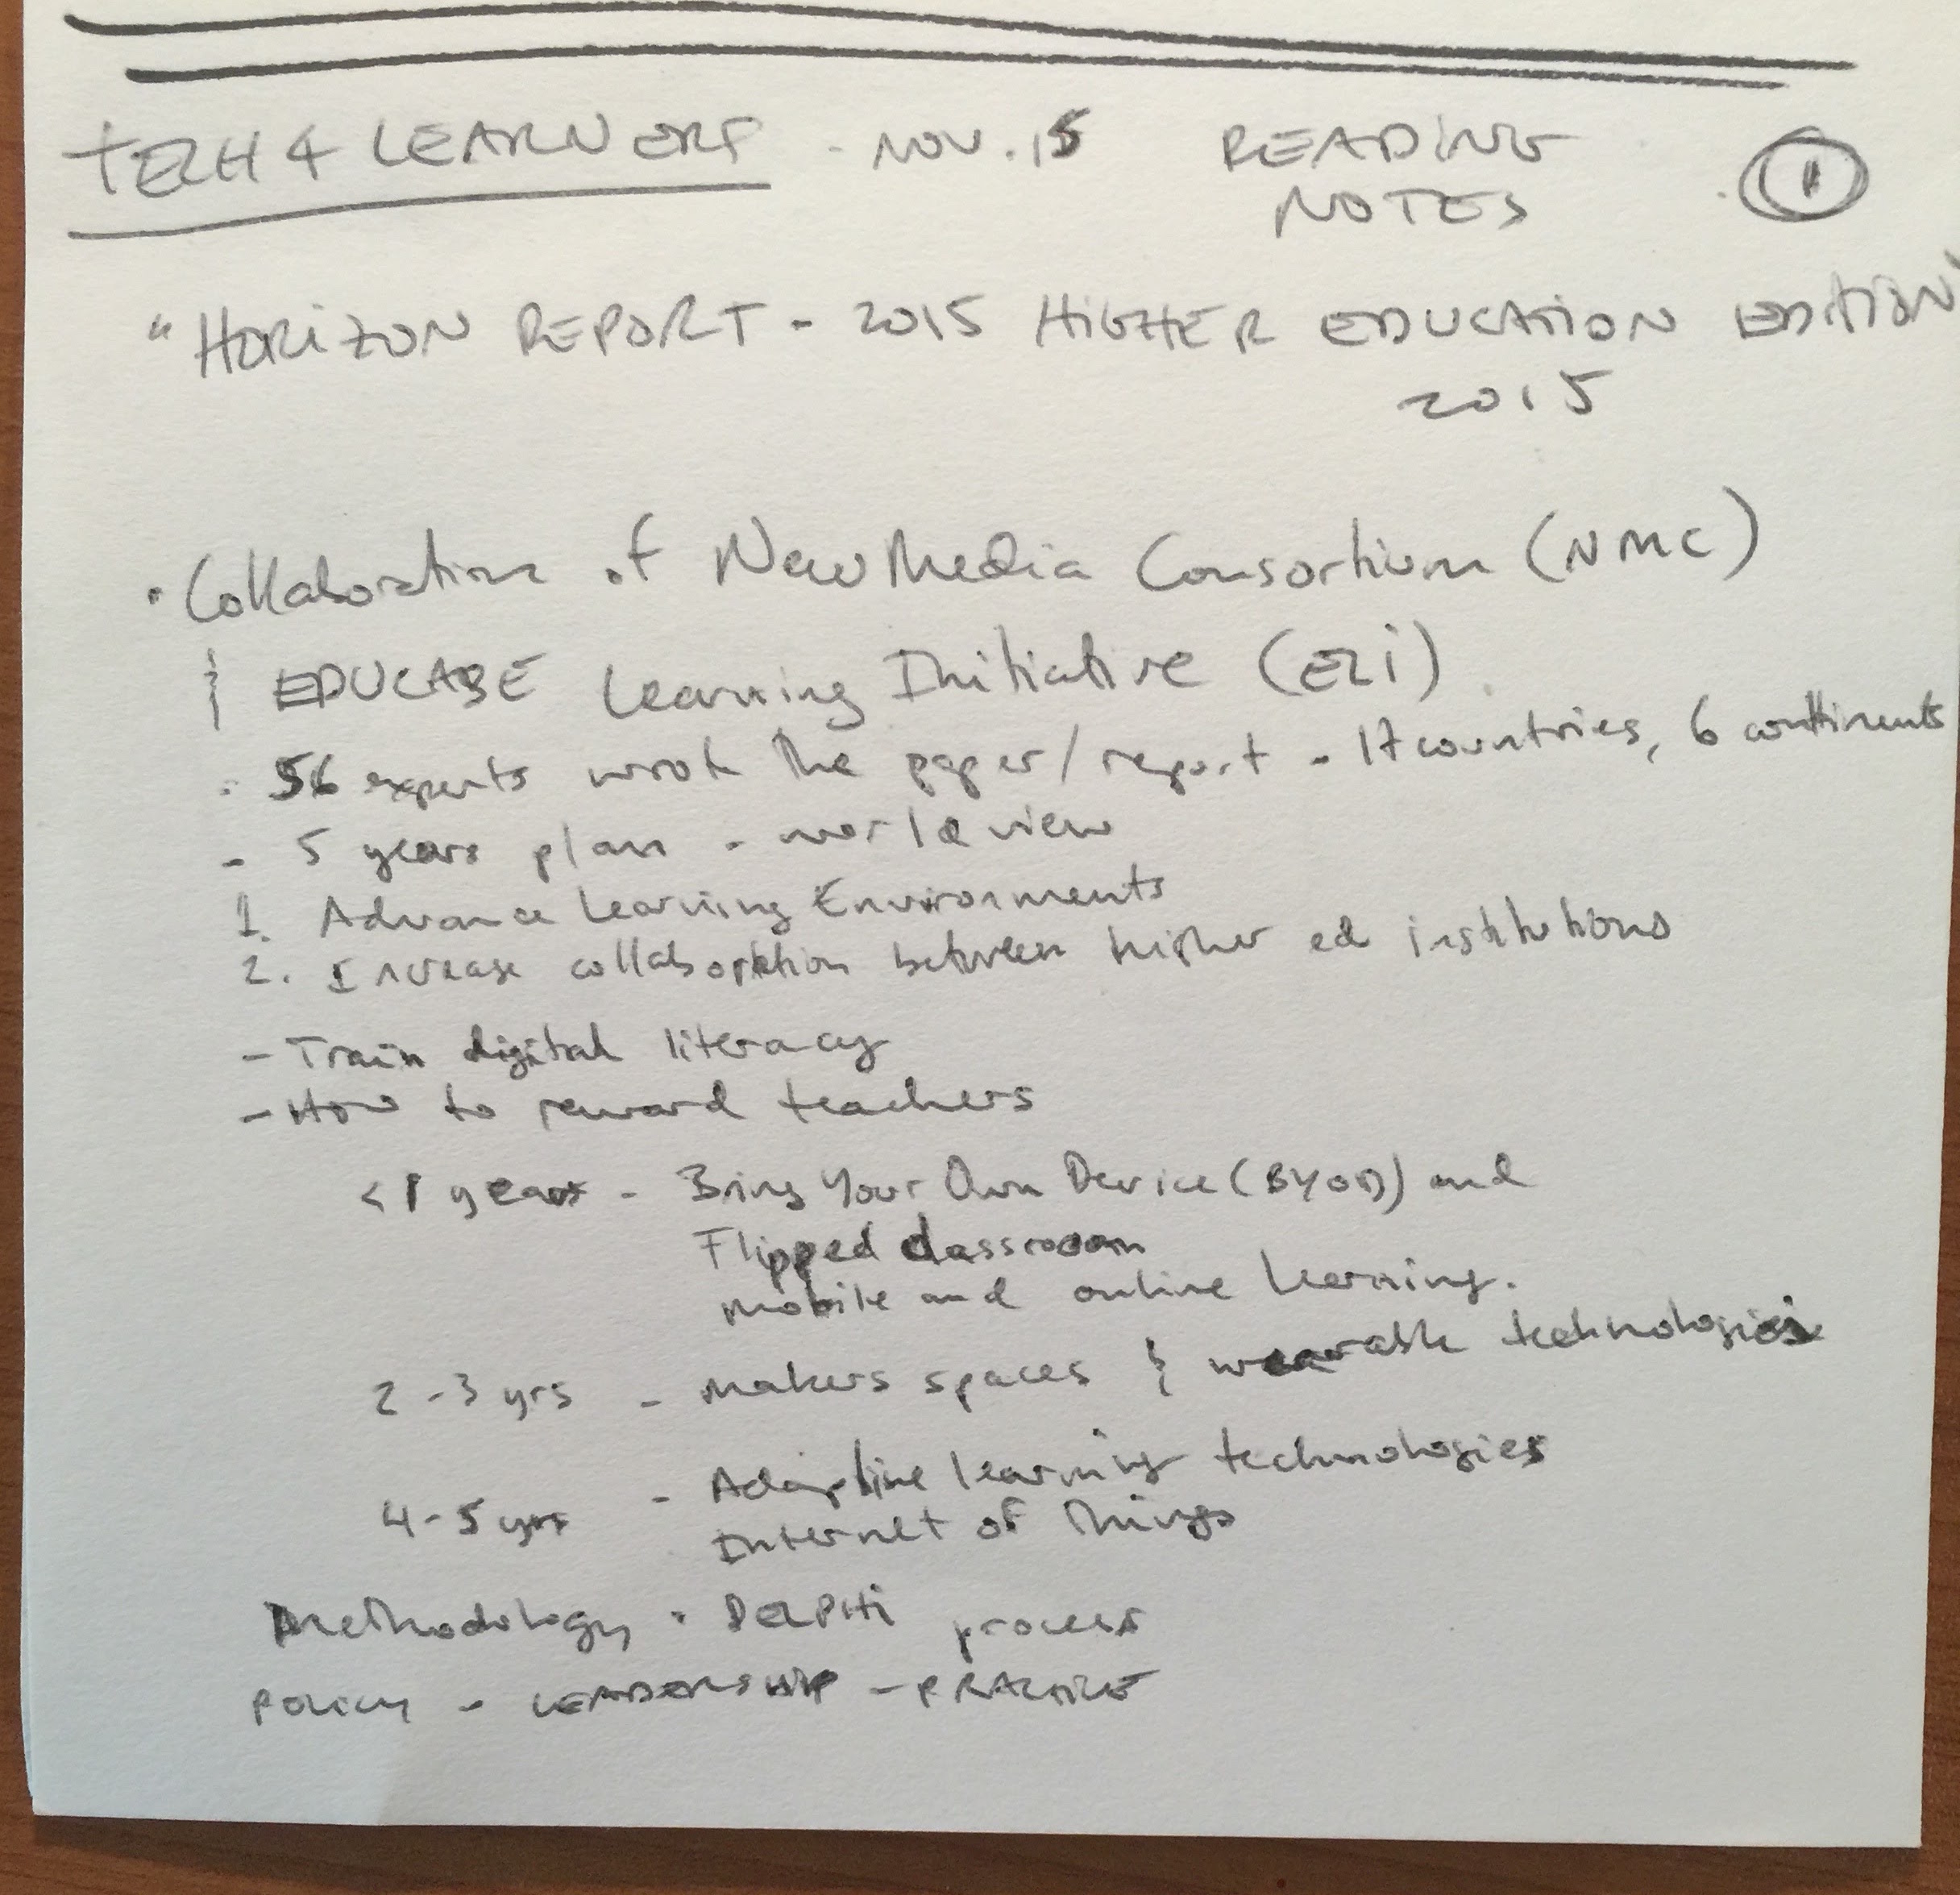 TECH & LEARNERS - NOV. 15 READING ①
NOTES
"HORIZON REPORT - 2015 HIGHER EDUCATION EDITION"
2015
• Collaboration of New Media Consortium (NMC)
& EDUCASE Learning Initiative (ELi)
- 56 experts wrote the paper/report - 17 countries, 6 continents
- 5 years plan - world view
1. Advance Learning Environments
2. Increase collaboration between higher ed institutions
- Train digital literacy
- How to reward teachers
<1 year - Bring Your Own Device (BYOD) and
Flipped classroom
mobile and online learning.
2-3 yrs - makers spaces & wearable technologies
4-5 yrs - Adaptive learning technologies
Internet of Things
Methodology • DELPHi process
POLICY - LEADERSHIP - PRACTICE